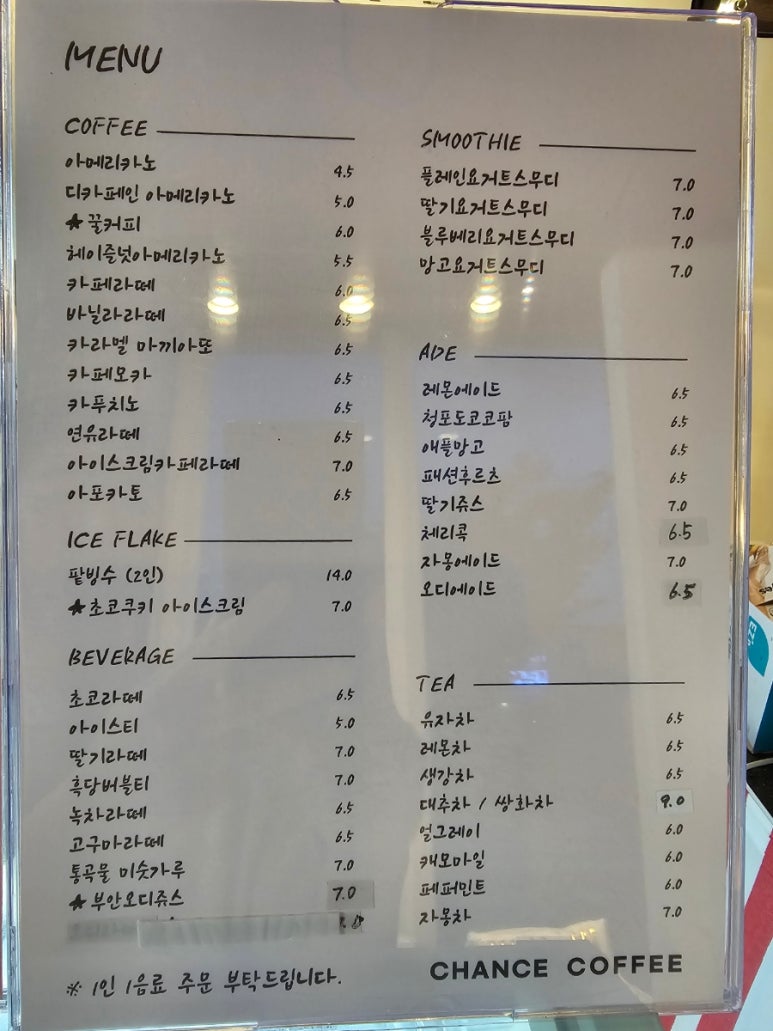 MENU
COFFEE
아메리카노 4.5
디카페인 아메리카노 5.0
★꿀커피 6.0
헤이즐넛아메리카노 5.5
카페라떼 6.0
바닐라라떼 6.5
카라멜 마끼아또 6.5
카페모카 6.5
카푸치노 6.5
연유라떼 6.5
아이스크림카페라떼 7.0
아포카토 6.5
ICE FLAKE
팥빙수 (2인) 14.0
★초코쿠키 아이스크림 7.0
BEVERAGE
초코라떼 6.5
아이스티 5.0
딸기라떼 7.0
흑당버블티 7.0
녹차라떼 6.5
고구마라떼 6.5
통곡물 미숫가루 7.0
★부안오디쥬스 7.0
※ 1인 1음료 주문 부탁드립니다.
SMOOTHIE
플레인요거트스무디 7.0
딸기요거트스무디 7.0
블루베리요거트스무디 7.0
망고요거트스무디 7.0
ADE
레몬에이드 6.5
청포도코코팜 6.5
애플망고 6.5
패션후르츠 6.5
딸기쥬스 7.0
체리콕 6.5
자몽에이드 7.0
오디에이드 6.5
TEA
유자차 6.5
레몬차 6.5
생강차 6.5
대추차 / 쌍화차 9.0
얼그레이 6.0
캐모마일 6.0
페퍼민트 6.0
자몽차 7.0
CHANCE COFFEE